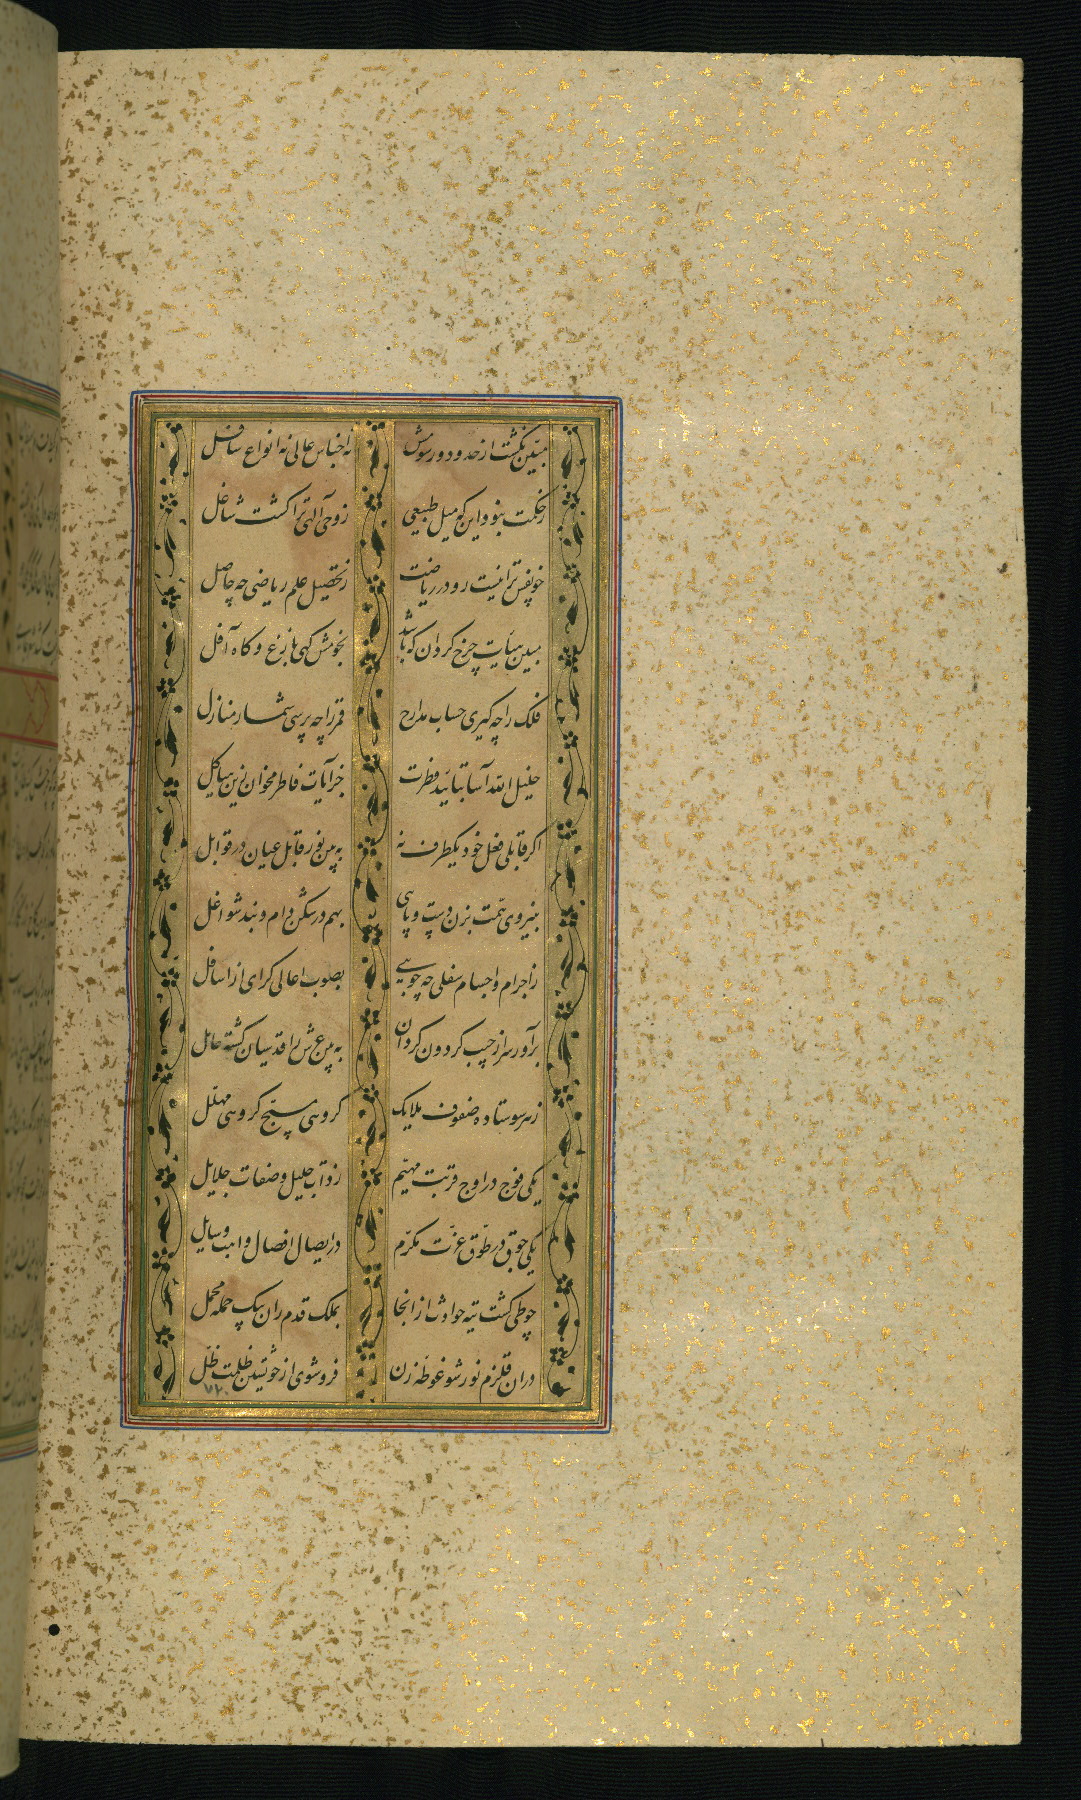 مبین نکشت از حدود و رسومش نه اجناس عالی نه انواع سافل
ز حکمت بنود این که میل طبیعی ز وحی آلهی ترا کشت شاغل
چو نفس ترا نیست رو در ریاضت ز تحصیل علم ریاضی چه حاصل
مبین هیات چرخ کردان که باشد نجومش کهی بازغ و کاه آفل
فلک را چه کیری حساب مدارج قمر را چه پرسی شمار منازل
خلیل الله آسا بتایید فطرت جز آیات فاطر مخوان زین هیاکل
اکر قابلی فعل خود یکطرف نه ببین نور قابل عیان در قوابل
بنیروی همت بزن دست و پایی بهم در شکن دام و بند شواغل
ز اجرام و اجسام سفلی چه جویی بصوب اعالی کرای از اسافل
برآور سر از جیب کردون کردان ببین عرش را قدسیان کشته حامل
ز هر سو ستاده صفوف ملایک کروهی مسبح کروهی مهلل
یکی فوج در اوج قربت مهیم ز ذات جلیل و صفات جلایل
یکی جوق در طوق عزت مکرم در ایصال افضال و اهب وسایل
چو طی کشت تیه حوادث از انجا بملک قدم ران بیک حمله محمل
دران قلزم نور شو غوطه زن فرو شوی از خویشتن ظلمت ظل